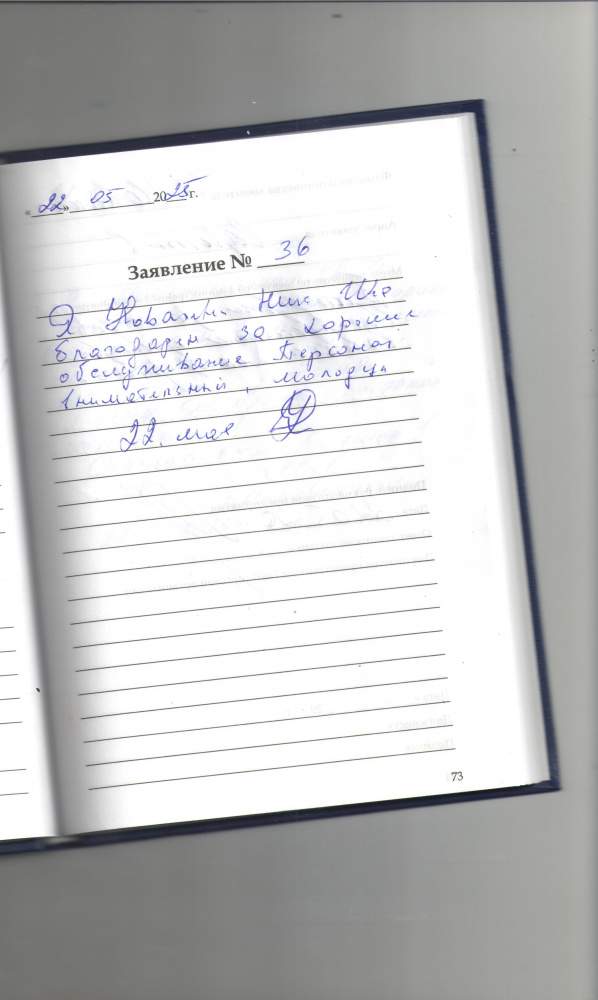 «22» 05 2025г.
Заявление № 36
Я
благодарен за хорошие
обслуживание Персонал
внимательный, молодцы
22. мая
73